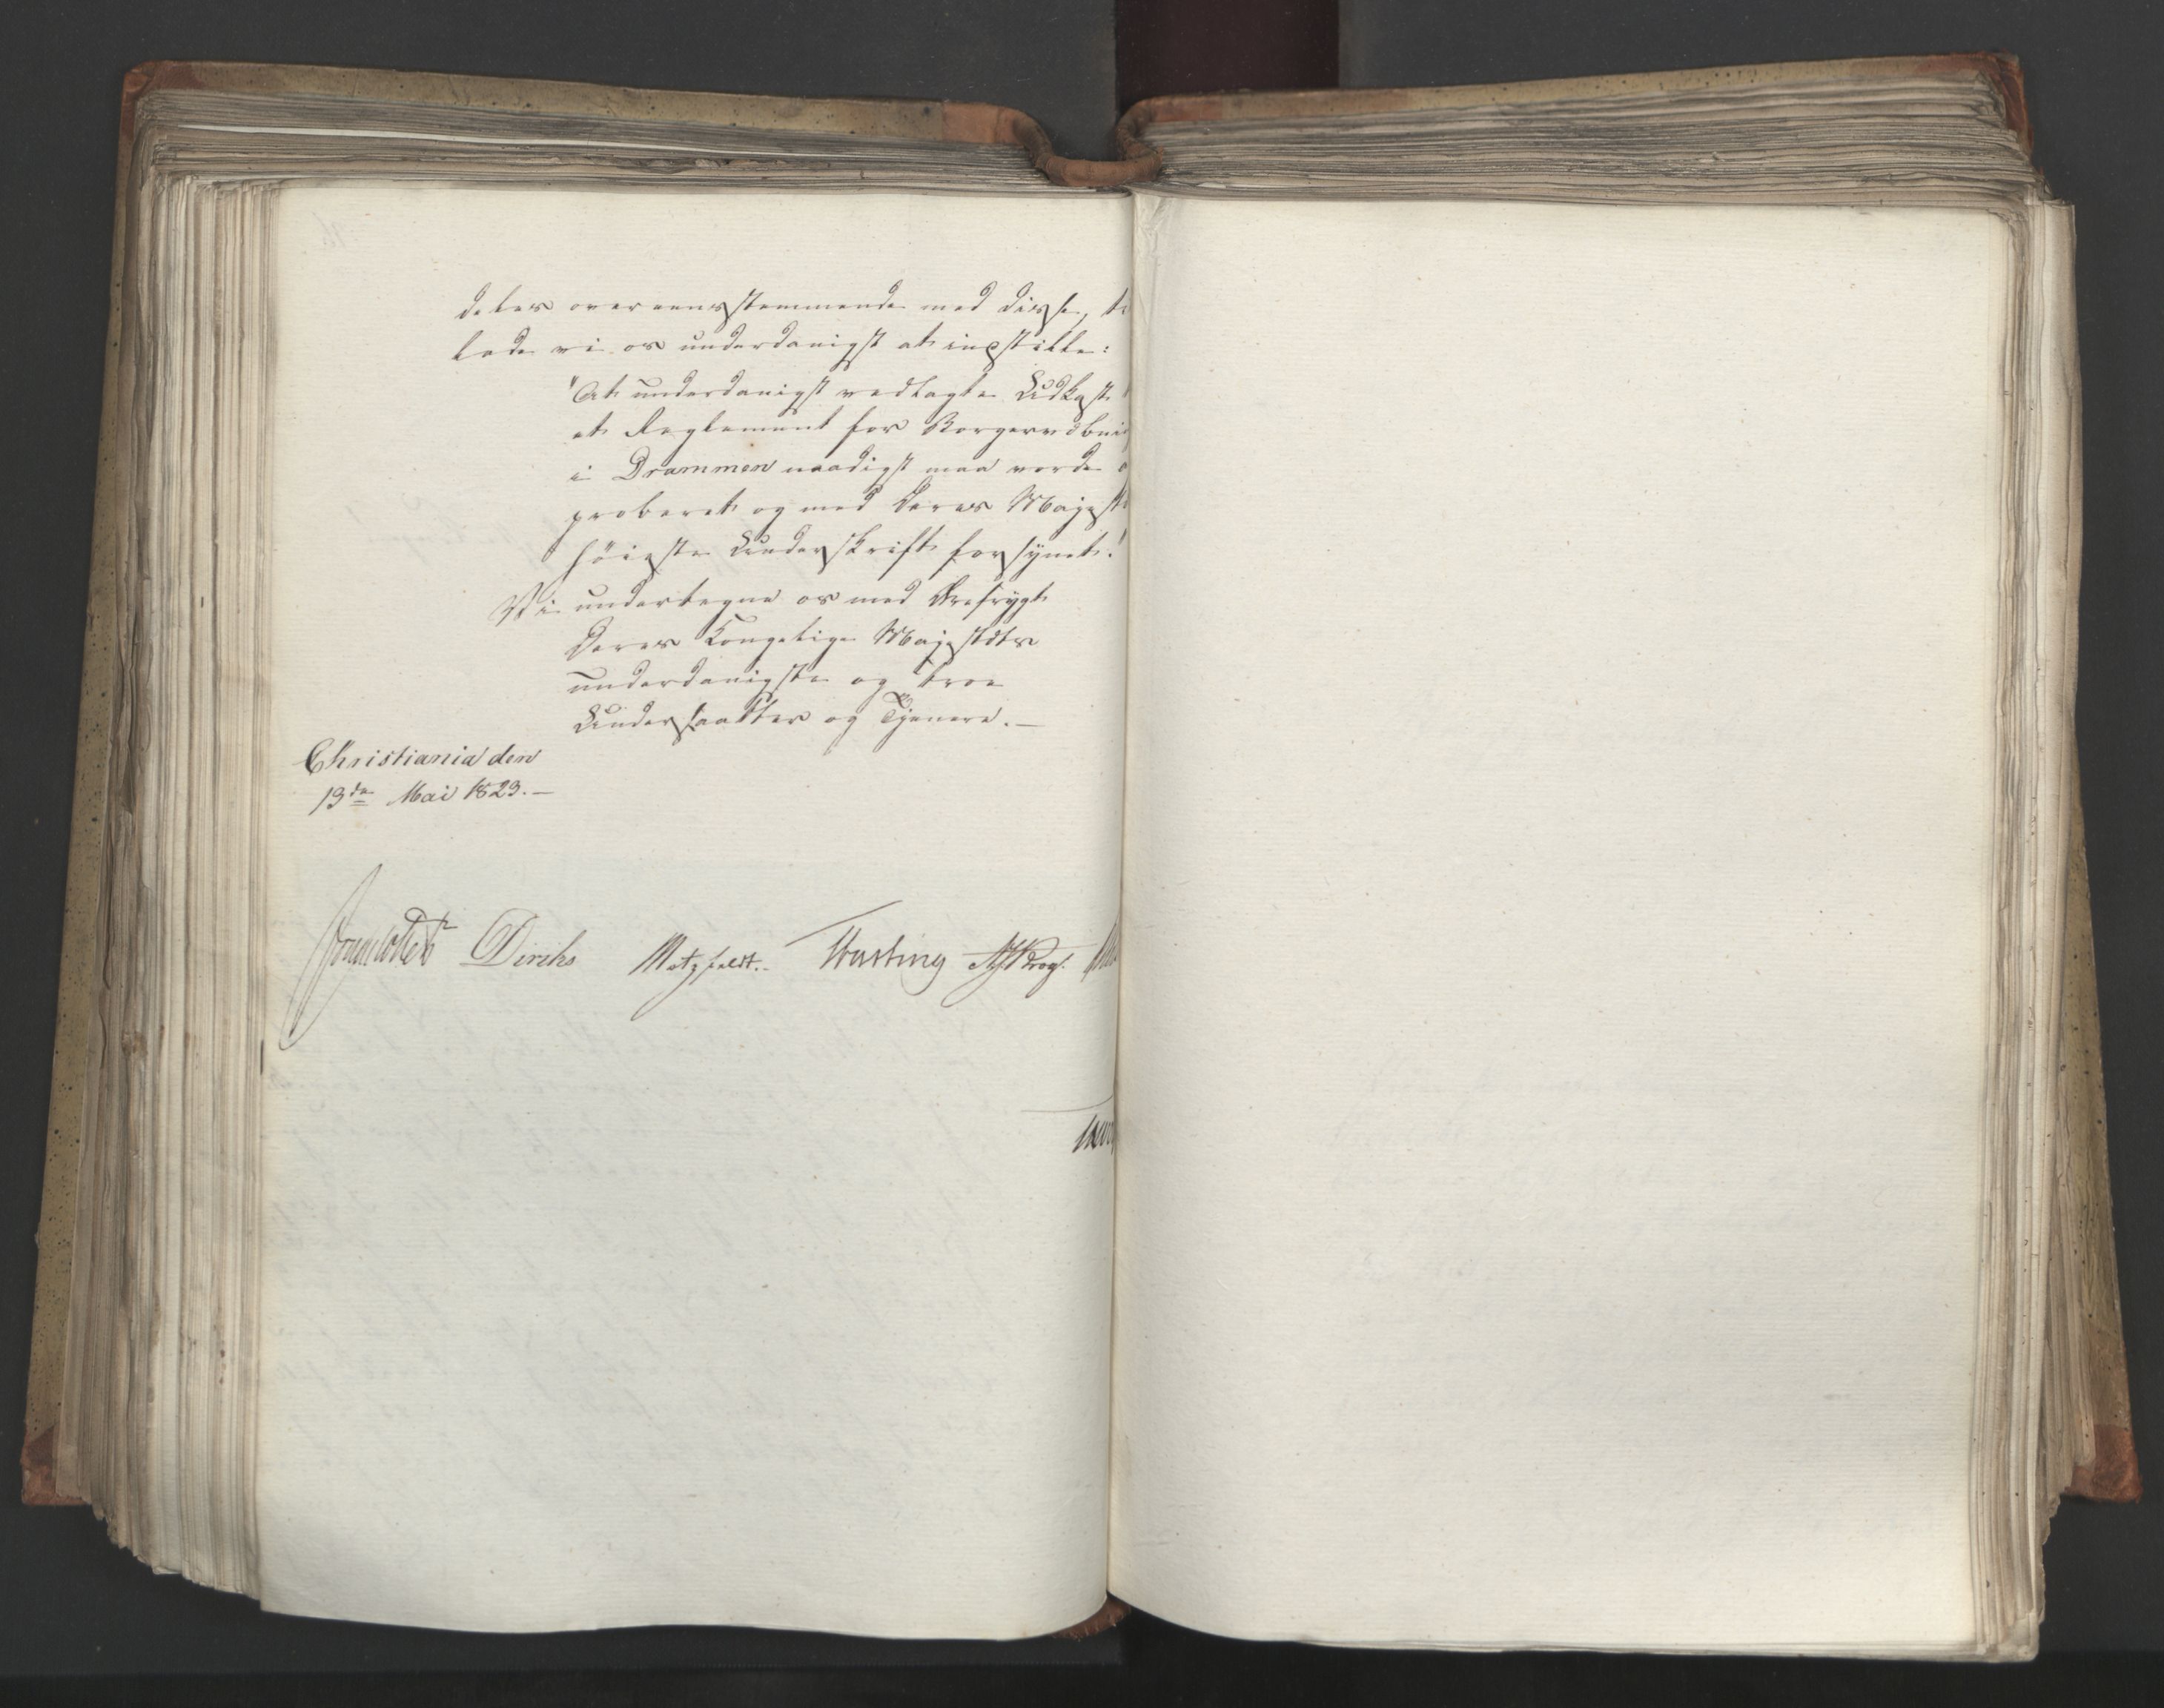 deles overeensstemmende med disse,
lade vi os underdanigst at indstille:
"At underdanigst vedlagte Udkast
et Reglement for Borgervæbni
i Drammen naadigst maa vorde
proberet og med Deres Majest
høieste Underskrift forsynet."
Vi undertegne os med Ærefrygt
Deres Kongelige Majestæts
underdanigste og troe
Undersaatter og Tjenere. —
Christiania den
13de Mai 1823. —
Diriks Motzfeldt. Fasting Krog.